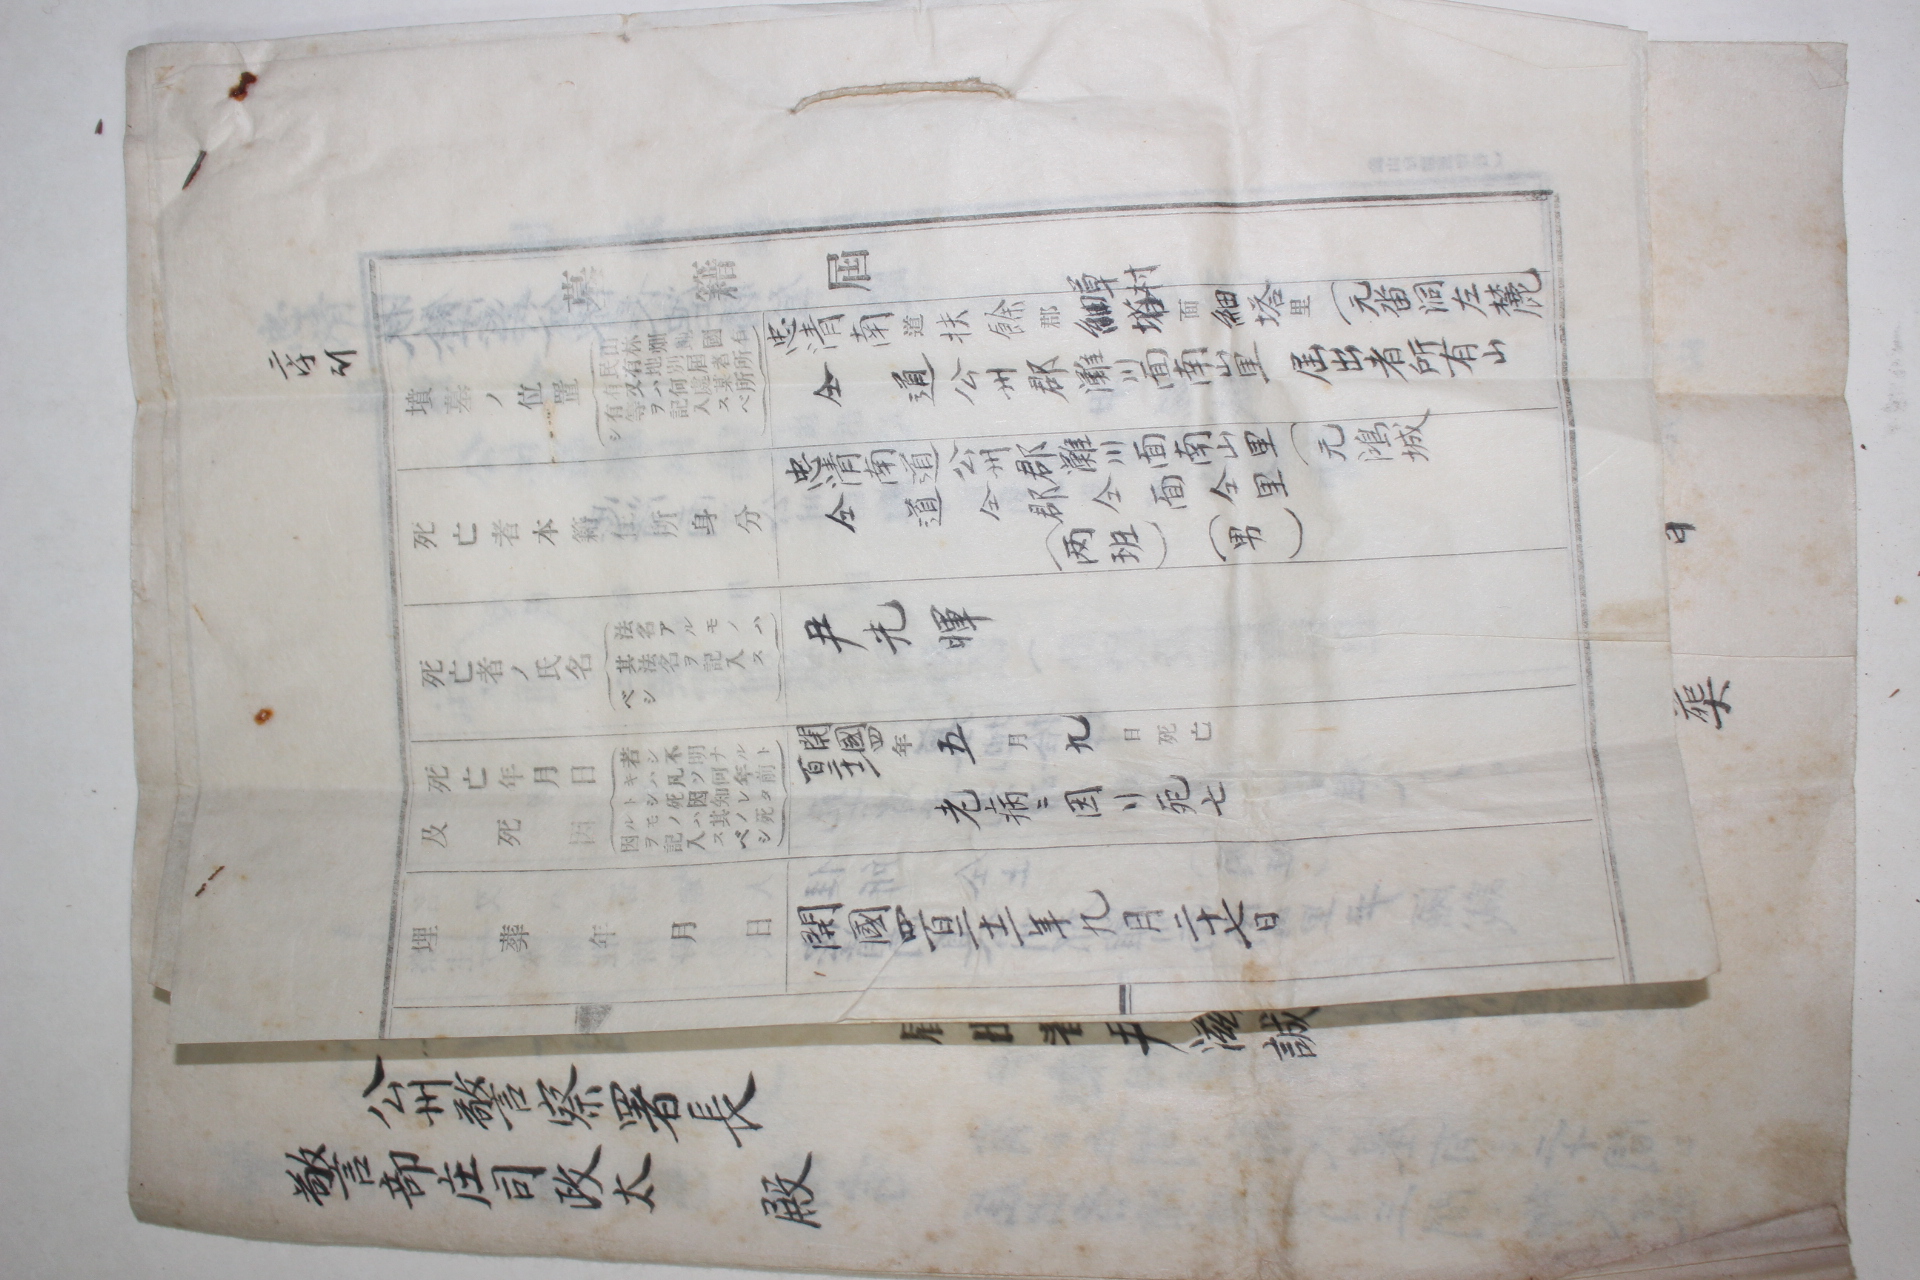 墓籍屆
墳墓ノ位置
山林畑
民有地別屆者所
有又ハ何處某所
有等ヲ記入スベ
シ
忠清南道扶餘郡細塔面細塔里(元畓洞左麓
草村
仝道公州郡灘川面南山里 屆出者所有山
死亡者本籍住所身分
忠清南道公州郡灘川面南山里(元鴻城
仝道仝郡仝面仝里
(两班)(男)
死亡者ノ氏名
法名アルモノハ
其法名ヲ記入ス
ベシ
尹光暉
死亡年月日
及死因
若シ不明ナルト
キハ凡ソ何年前
トシ死因知レタ
ルモノハ其ノ死
因ヲ記入スベシ
開國四百二十二年五月九日死亡
老病ニ因リ死亡
埋葬年月日
開國四百二十二年九月二十七日
屆出者尹滋誠
公州警察署長
警部庄司政太 殿